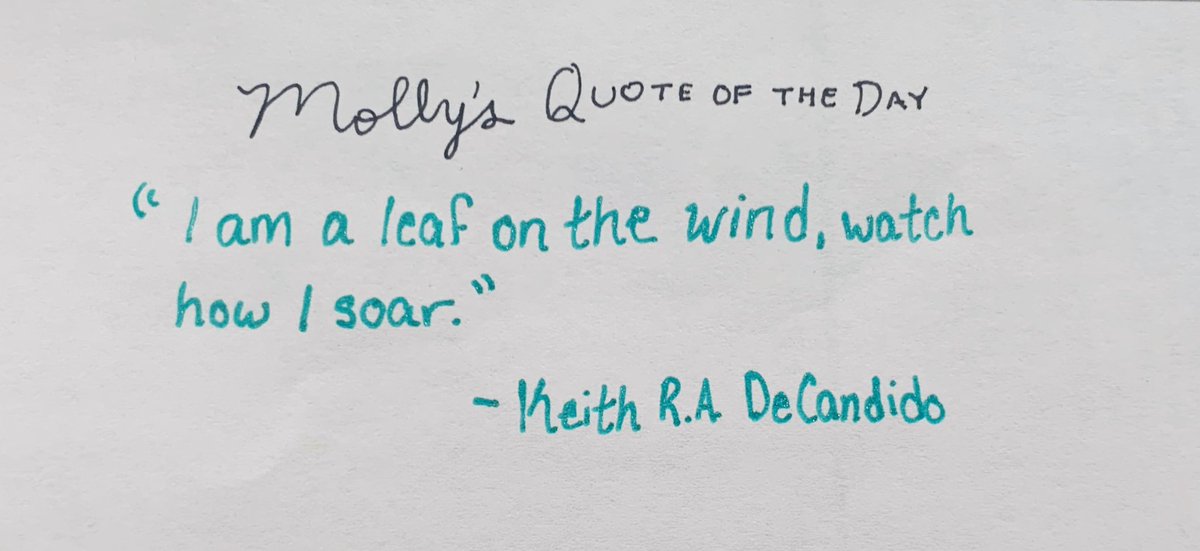 Molly's QUOTE OF THE DAY
"I am a leaf on the wind, watch
how I soar."
- Keith R.A DeCandido